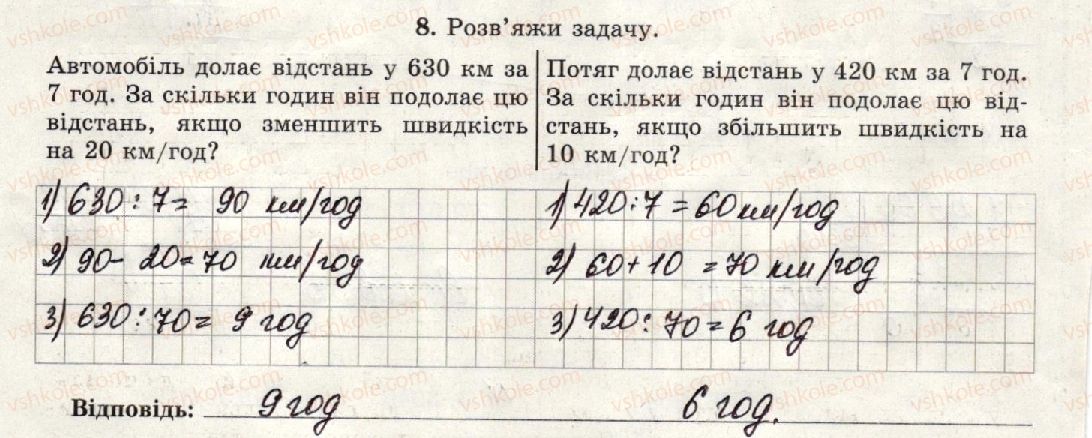 8. Розв'яжи задачу.
Автомобіль долає відстань у 630 км за
7 год. За скільки годин він подолає цю
відстань, якщо зменшить швидкість
на 20 км/год?
Потяг долає відстань у 420 км за 7 год.
За скільки годин він подолає цю від-
стань, якщо збільшить швидкість на
10 км/год?
1) 630 : 7 = 90 км/год
2) 90 - 20 = 70 км/год
3) 630 : 70 = 9 год
1) 420 : 7 = 60 км/год
2) 60 + 10 = 70 км/год
3) 420 : 70 = 6 год
Відповідь: 9 год 6 год.
vshkole.com